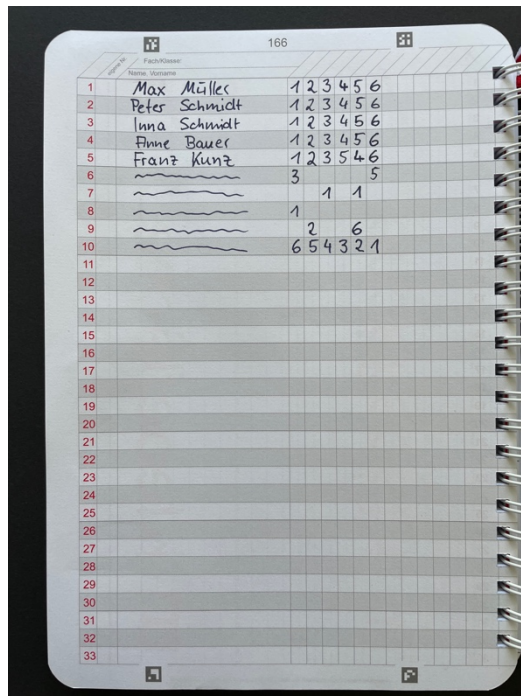 166
Fach/Klasse:
Name, Vorname
1 Max Müller 1 2 3 4 5 6
2 Peter Schmidt 1 2 3 4 5 6
3 Inna Schmidt 1 2 3 4 5 6
4 Anne Bauer 1 2 3 4 5 6
5 Franz Kunz 1 2 3 5 4 6
6 3 5
7 1 1
8 1
9 2 6
10 6 5 4 3 2 1
11
12
13
14
15
16
17
18
19
20
21
22
23
24
25
26
27
28
29
30
31
32
33